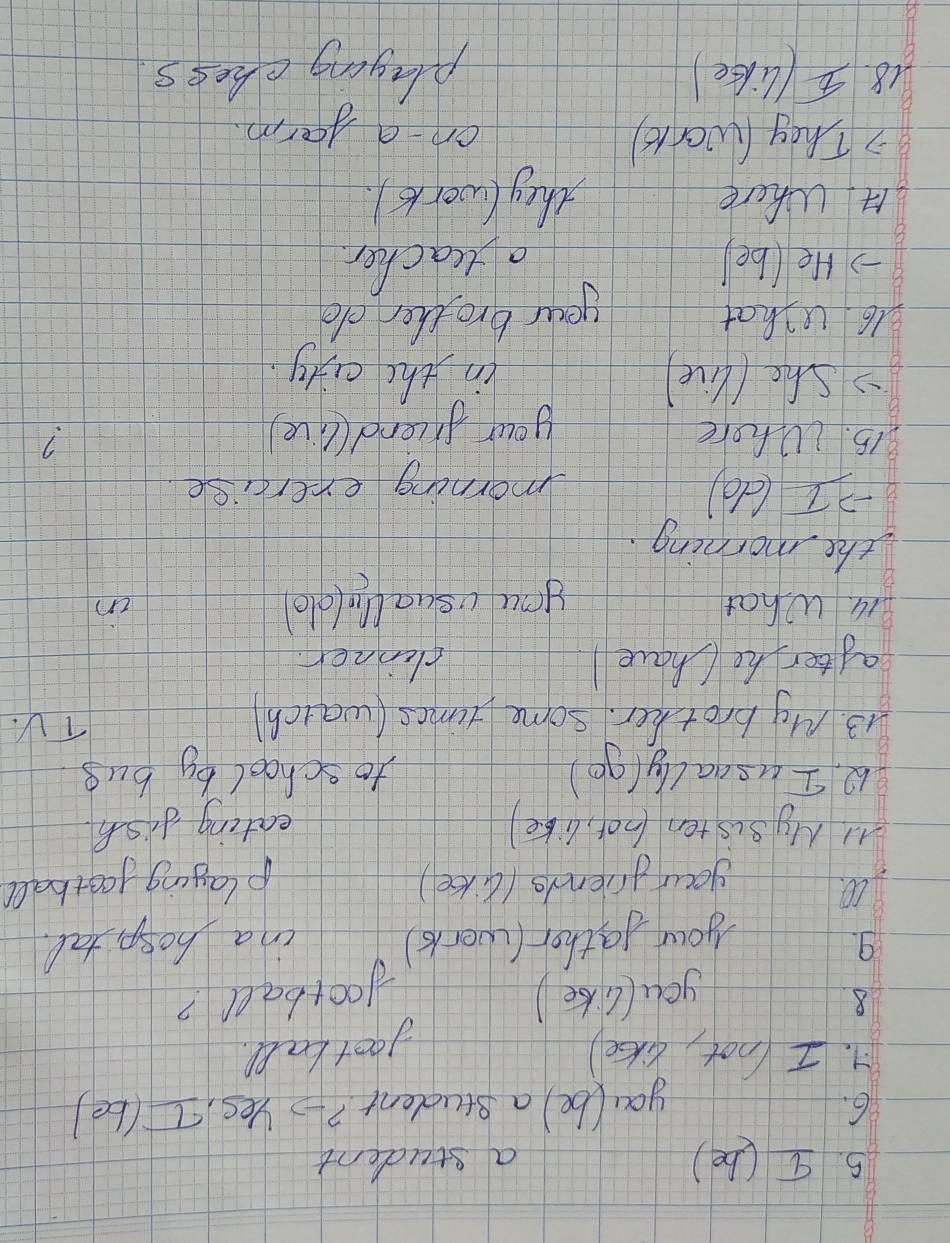 5. I (be) a student
6. you (be) a student? → Yes, I (be)
7. I (not, like) football.
8. you (like) football?
9. your father (work) in a hospital.
10. your friends (like) playing football
11. My sister (not, like) eating fish.
12. I usually (go) to school by bus
13. My brother. some times (watch) TV.
after he (have) dinner.
14. What you usually (do) in
the morning.
→ I (do) morning exercise.
15. Where your friend (live) ?
→ She (live) in the city.
16. What your brother do
→ He (be) a teacher.
17. Where they (work).
→ They (work) on a farm.
18. I (like) playing chess.